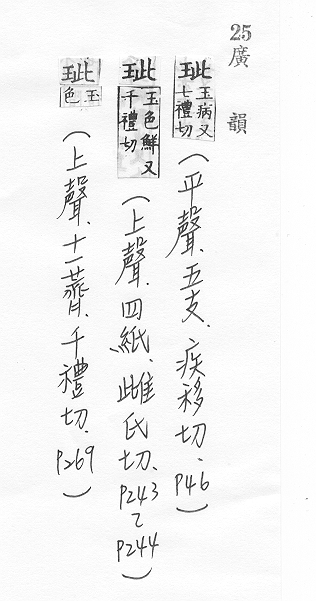 25廣韻
玼玉病又七禮切（平聲、五支、疾移切、P46）
玼玉色鮮又千禮切（上聲、四紙、雌氏切、P243~P244）
玼玉色（上聲、十一薺、千禮切、P269）